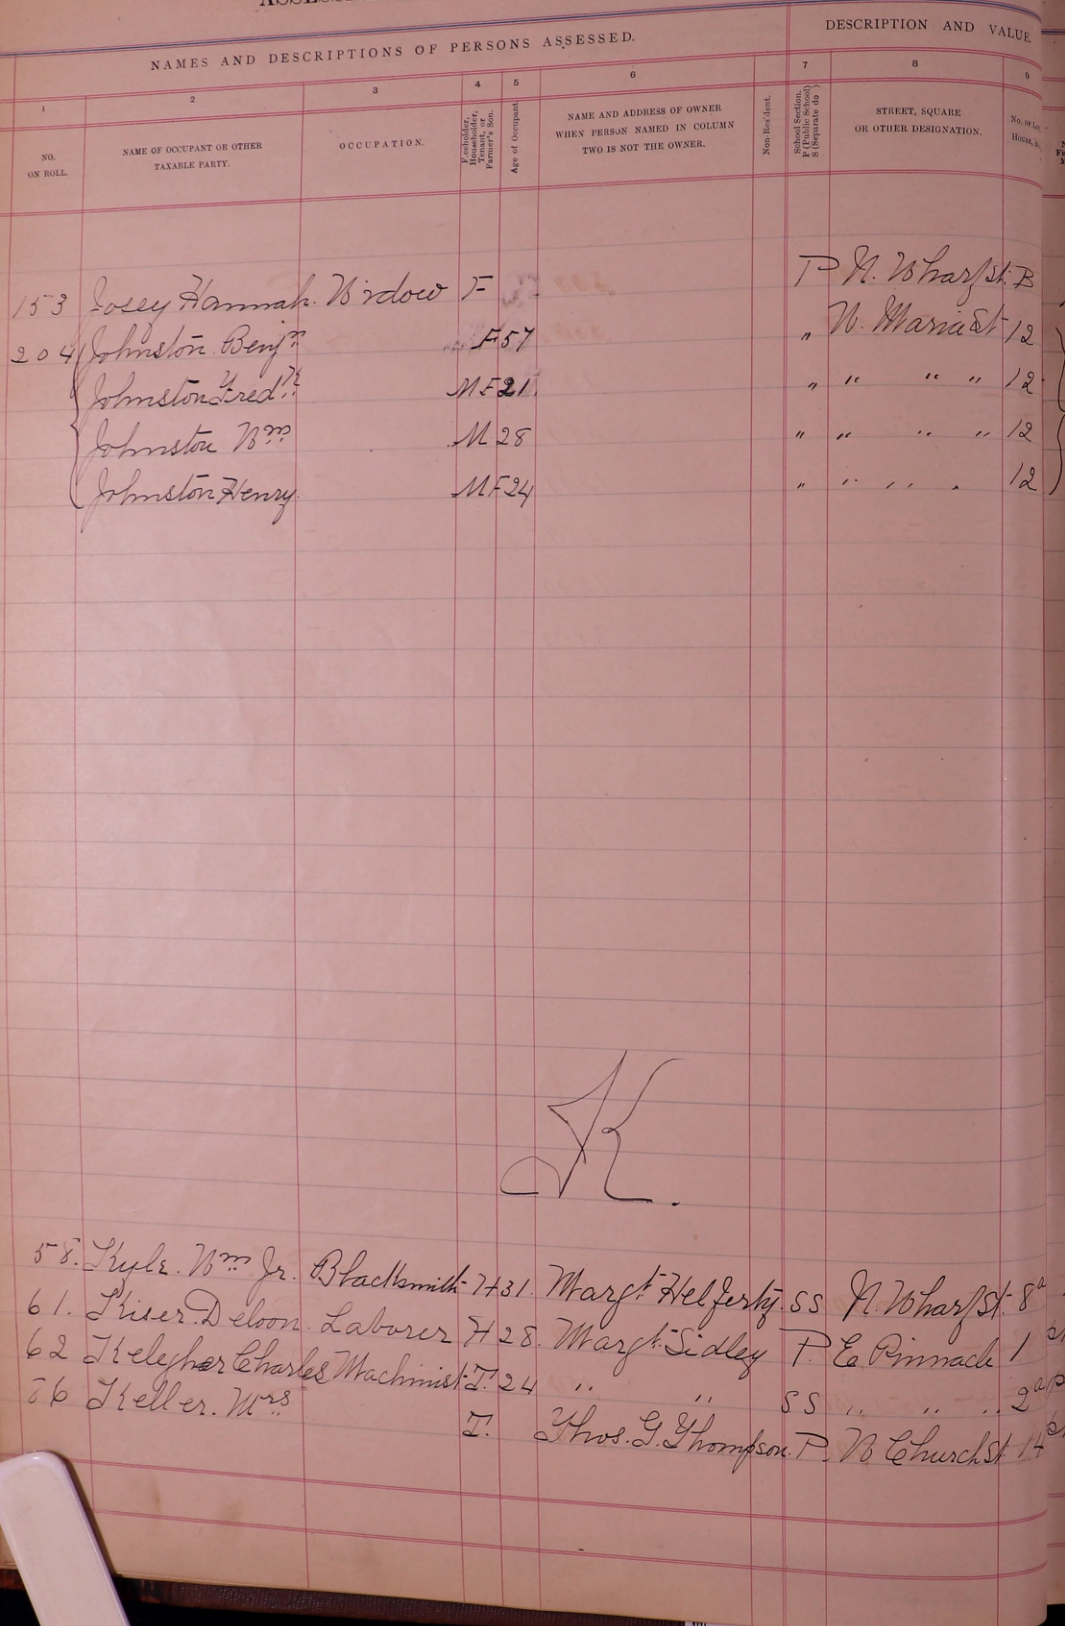 NAMES AND DESCRIPTIONS OF PERSONS ASSESSED.
DESCRIPTION AND VALUE
1 2 3 4 5 6 7 8 9
NO. ON ROLL.
NAME OF OCCUPANT OR OTHER TAXABLE PARTY.
OCCUPATION.
Freeholder, Householder, Tenant, or Farmer's Son.
Age of Occupant.
NAME AND ADDRESS OF OWNER WHEN PERSON NAMED IN COLUMN TWO IS NOT THE OWNER.
Non-Resident.
School Section. P (Public School) S (Separate do )
STREET, SQUARE OR OTHER DESIGNATION.
153 Josey Hannah. Widow F P N. Wharf St. B
204 Johnston Benjn F 57 " W. Maria St 12
Johnston Fredk MF 21 " " " " 12
Johnston Wm M 28 " " " " 12
Johnston Henry MF 24 " " " " 12
K.
58. Kyle. Wm Jr. Blacksmith H 31. Margt Helferty. SS N. Wharf St 8a
61. Kiser Deloon Laborer H 28. Margt Sidley P. E Pinnacle 1
62 Kelegher Charles Machinist T. 24 " " SS " " " 2a
Keller. Mrs T. Thos. G. Thompson. P. W Church St 14